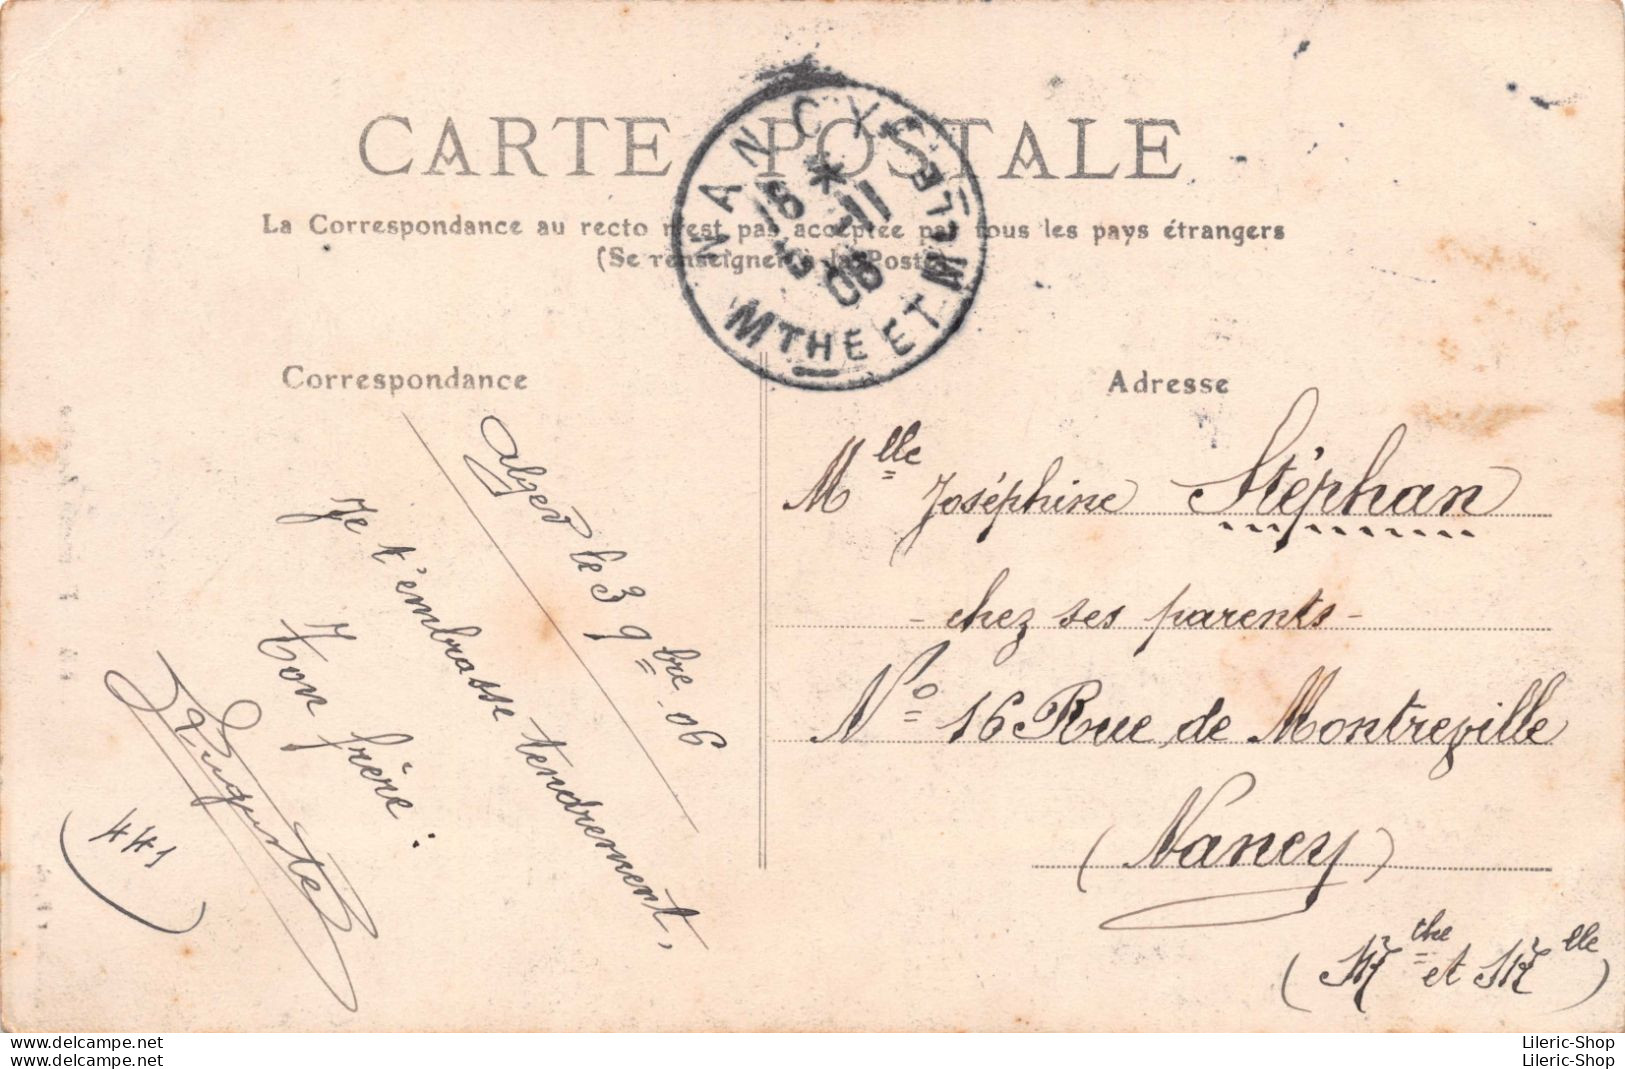 CARTE POSTALE
La Correspondance au recto n'est pas acceptée par tous les pays étrangers
(Se renseigner à la Poste)
NANCY
MTHE ET MLLE
11
06
Correspondance
Adresse
Alger le 3 9bre 06
Je t'embrasse tendrement,
Ton frère:
Auguste
(441)
Mlle Joséphine Stéphan
- chez ses parents -
No 16 Rue de Montreville
(Nancy)
(Mthe et Mlle)
Lileric-Shop
Lileric-Shop
delcampe.net
delcampe.net